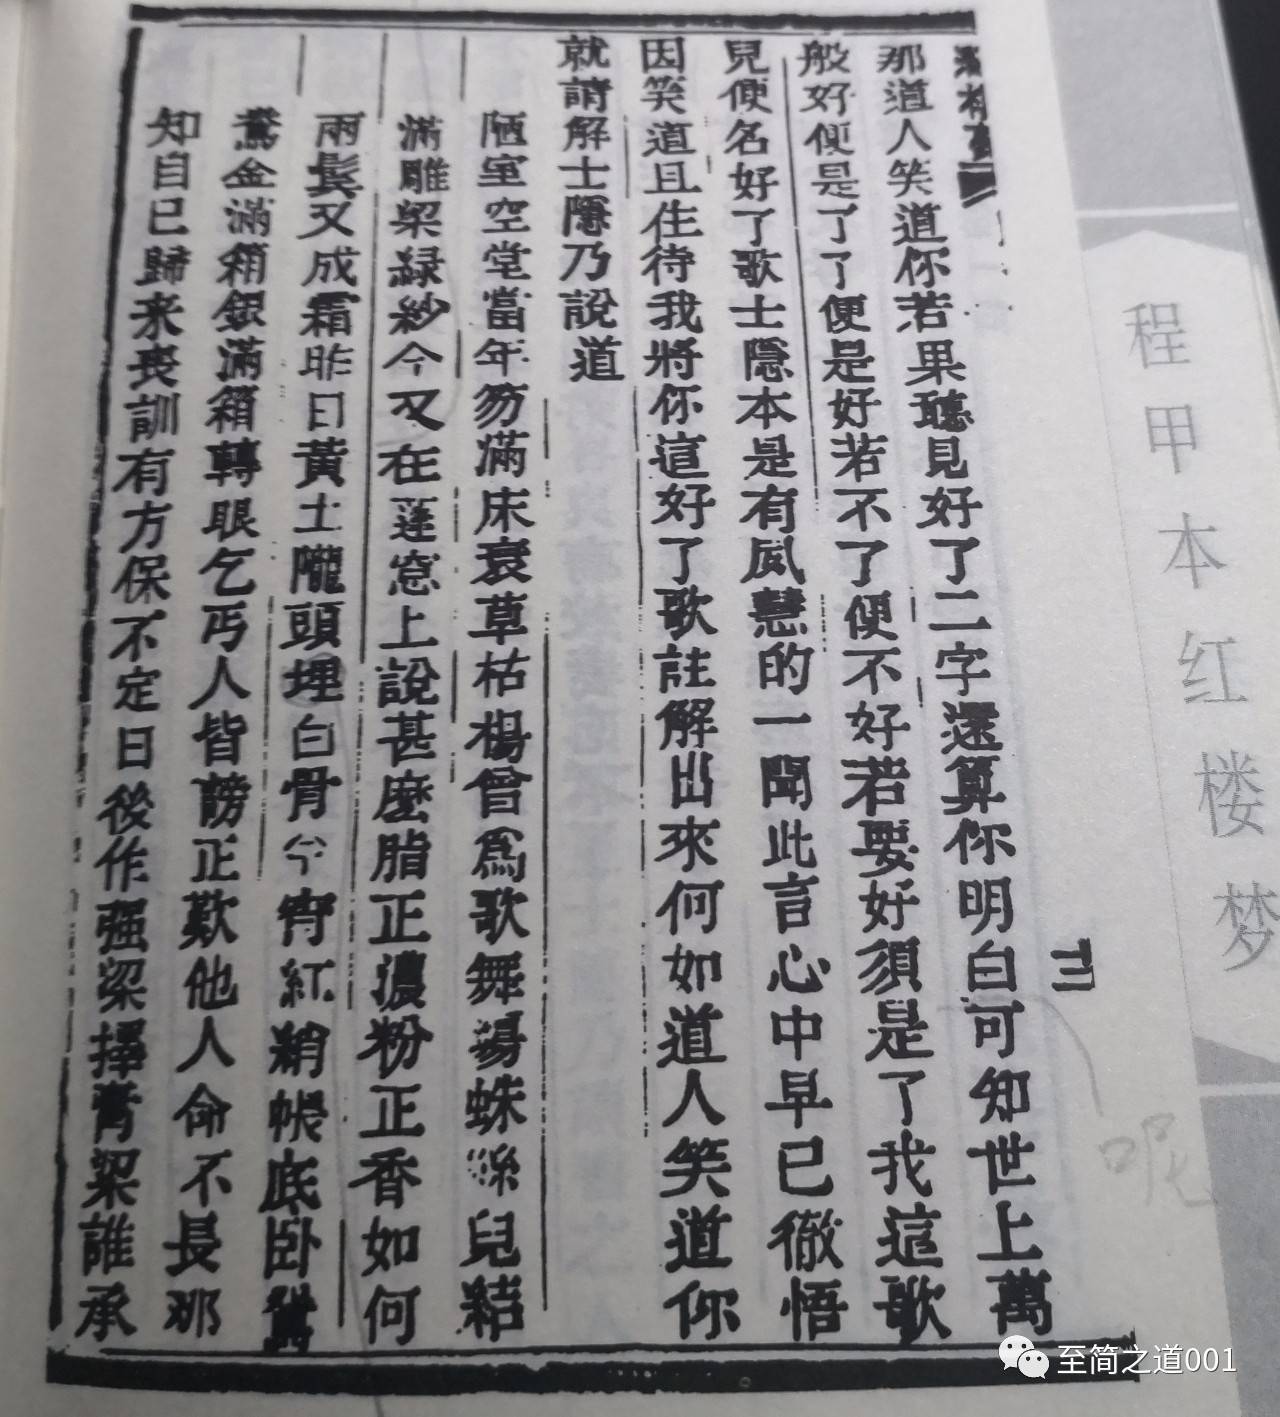 那道人笑道你若果聽見好了二字還算你明白可知世上萬
般好便是了了便是好若不了便不好若要好須是了我這歌
兒便名好了歌士隱本是有夙慧的一聞此言心中早已徹悟
因笑道且住待我將你這好了歌註解出來何如道人笑道你
就請解士隱乃說道
陋室空堂當年笏滿床衰草枯楊曾爲歌舞塲蛛絲兒結
滿雕梁綠紗今又在蓬窓上說甚麽脂正濃粉正香如何
兩鬓又成霜昨日黃土隴頭埋白骨今宵紅綃帳底臥鴛
鴦金滿箱銀滿箱轉眼乞丐人皆謗正歎他人命不長那
知自己歸來喪訓有方保不定日後作强梁擇膏粱誰承
程甲本红楼梦
呢
至简之道001